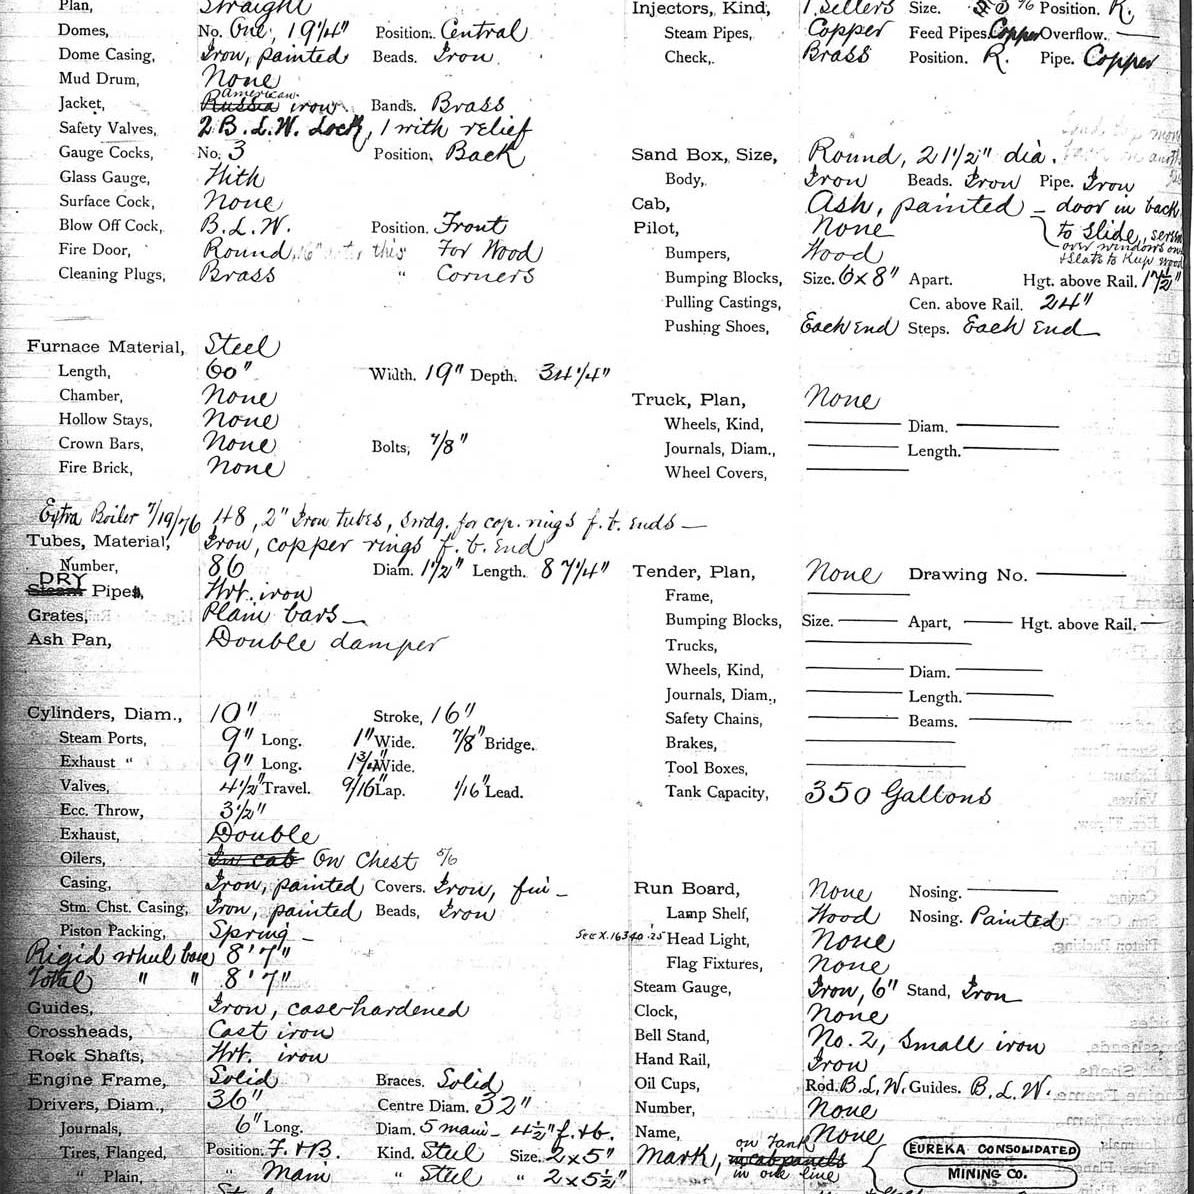 Plan, Straight
Domes, No. One, 19 1/4" Position. Central
Dome Casing, Iron, painted Beads. Iron
Mud Drum, None
American
Jacket, Russia iron Bands. Brass
Safety Valves, 2 B.L.W. Lock, 1 with relief
Gauge Cocks, No. 3 Position. Back
Glass Gauge, With
Surface Cock, None
Blow Off Cock, B.L.W. Position. Front
Fire Door, Round, this For Wood
Cleaning Plugs, Brass " Corners
Furnace Material, Steel
Length, 60" Width. 19" Depth. 34 1/4"
Chamber, None
Hollow Stays, None
Crown Bars, None Bolts, 7/8"
Fire Brick, None
Extra Boiler 7/19/76 48, 2" Iron tubes, Swdg. for cop. rings f. b. ends —
Tubes, Material, Iron, copper rings f. b. End
Number, 86 Diam. 1 1/2" Length. 87 1/4"
DRY
Steam Pipes, Wrt. iron
Grates, Plain bars —
Ash Pan, Double damper
Cylinders, Diam., 10" Stroke, 16"
Steam Ports, 9" Long. 1" Wide. 7/8" Bridge.
Exhaust " 9" Long. Wide.
Valves, 4 1/2" Travel. 9/16" Lap. 1/16" Lead.
Ecc. Throw, 3 1/2"
Exhaust, Double
Oilers, In cab On Chest 5/6
Casing, Iron, painted Covers. Iron, fin —
Stm. Chst. Casing, Iron, painted Beads, Iron
Piston Packing, Spring —
Rigid wheel base 8' 7"
Total " " 8' 7"
Guides, Iron, case-hardened
Crossheads, Cast iron
Rock Shafts, Wrt. iron
Engine Frame, Solid Braces. Solid
Drivers, Diam., 36" Centre Diam. 32"
Journals, 6" Long. Diam. 5 main — 4 1/2" f. + b.
Tires, Flanged, Position. F. + B. Kind. Steel Size. 2 x 5"
" Plain, " Main " Steel " 2 x 5 1/2"
Injectors, Kind, 1 Sellers Size. Position. R.
Steam Pipes, Copper Feed Pipes. Copper Overflow. —
Check, Brass Position. R. Pipe. Copper
Sand Box, Size, Round, 21 1/2" dia.
Body, Iron Beads. Iron Pipe. Iron
Cab, Ash, painted — door in back
Pilot, None to slide,
over windows on
+ slats to keep wood
Bumpers, Wood
Bumping Blocks, Size. 6x8" Apart. Hgt. above Rail. 17 1/2"
Pulling Castings, Cen. above Rail. 24"
Pushing Shoes, Each End Steps. Each End
Truck, Plan, None
Wheels, Kind, — Diam. —
Journals, Diam., — Length. —
Wheel Covers, —
Tender, Plan, None Drawing No. —
Frame, —
Bumping Blocks, Size. — Apart, — Hgt. above Rail. —
Trucks, —
Wheels, Kind, — Diam. —
Journals, Diam., — Length. —
Safety Chains, — Beams. —
Brakes, —
Tool Boxes, —
Tank Capacity, 350 Gallons
Run Board, None Nosing. —
Lamp Shelf, Wood Nosing. Painted
See X. 16340·25 Head Light, None
Flag Fixtures, None
Steam Gauge, Iron, 6" Stand, Iron
Clock, None
Bell Stand, No. 2, Small iron
Hand Rail, Iron
Oil Cups, Rod. B.L.W. Guides. B.L.W.
Number, None
Name, None
on Tank
Mark, in cab panels
in one line
EUREKA CONSOLIDATED
MINING CO.